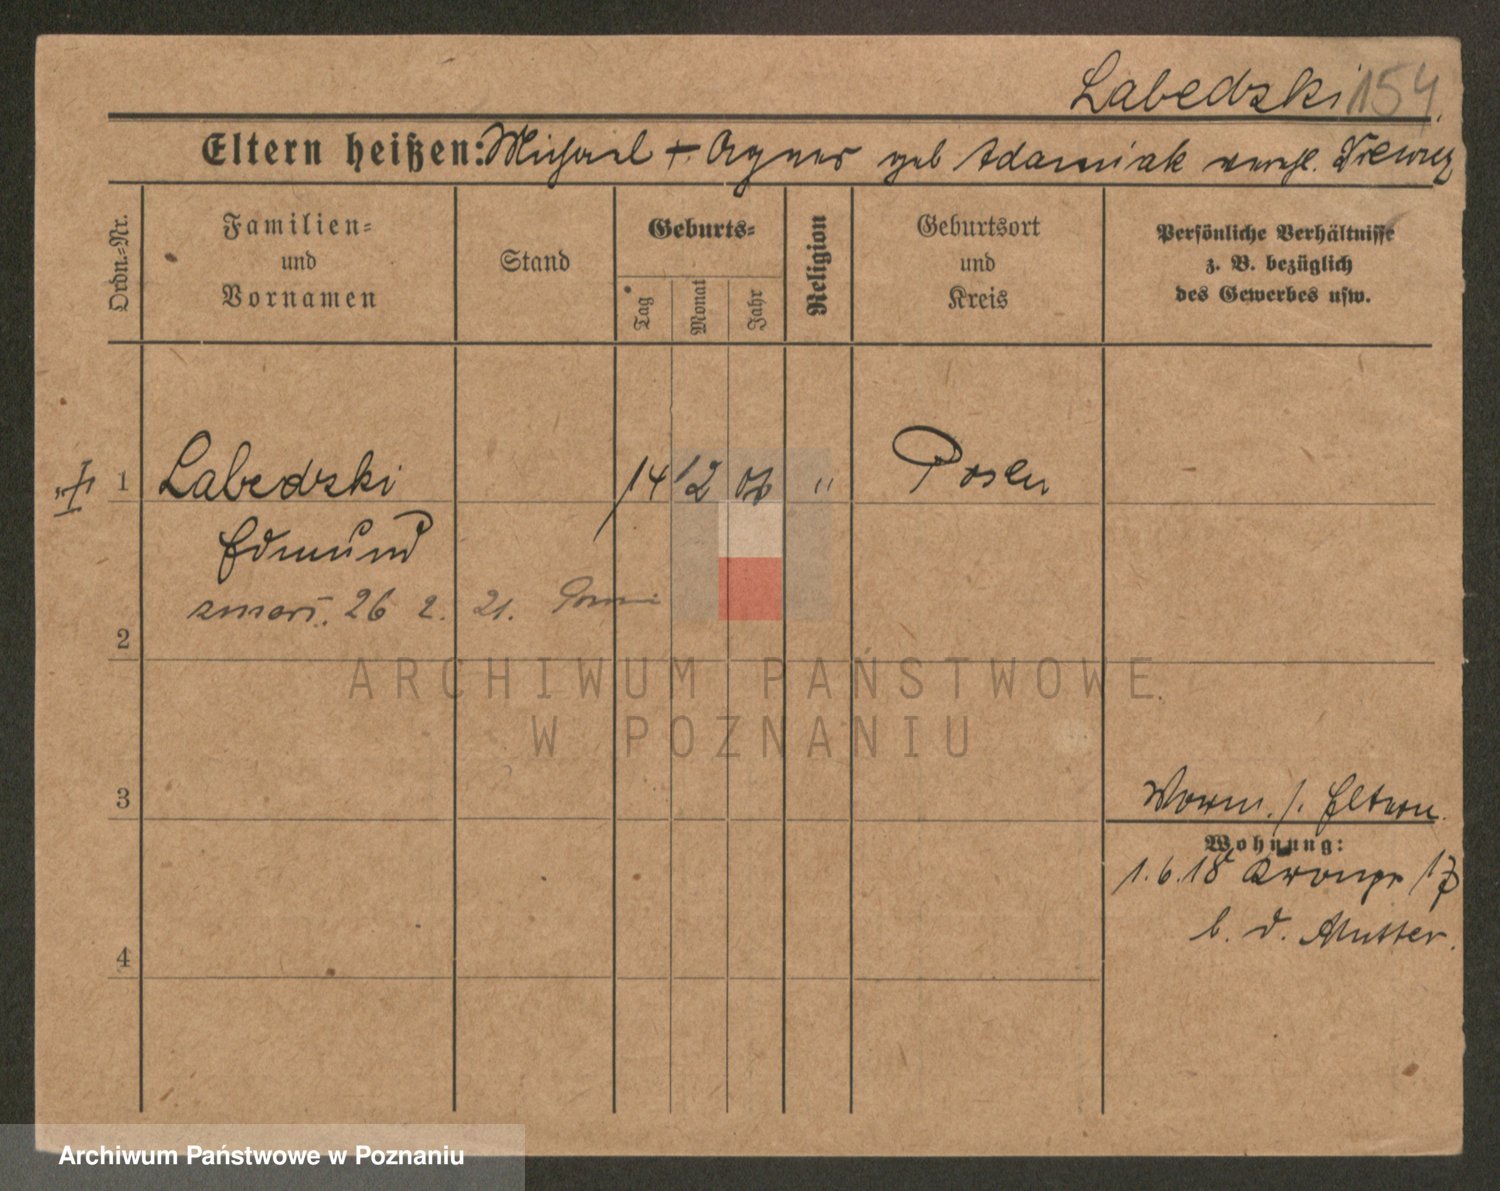 Labedzki 154.
Eltern heißen: Michael + Agnes geb Adamiak verehl.
Ordn.-Nr.
Familien-
und
Vornamen
Stand
Geburts-
Tag
Monat
Jahr
Religion
Geburtsort
und
Kreis
Persönliche Verhältnisse
z. B. bezüglich
des Gewerbes usw.
1 Labedzki 14 12 " Posen
Edmund
zmarł. 26 2. 21.
2
ARCHIWUM PAŃSTWOWE
W POZNANIU
3
Vorm. s. Eltern.
Wohnung:
1.6.18 Kronpr 17
b. d. Mutter.
4
Archiwum Państwowe w Poznaniu